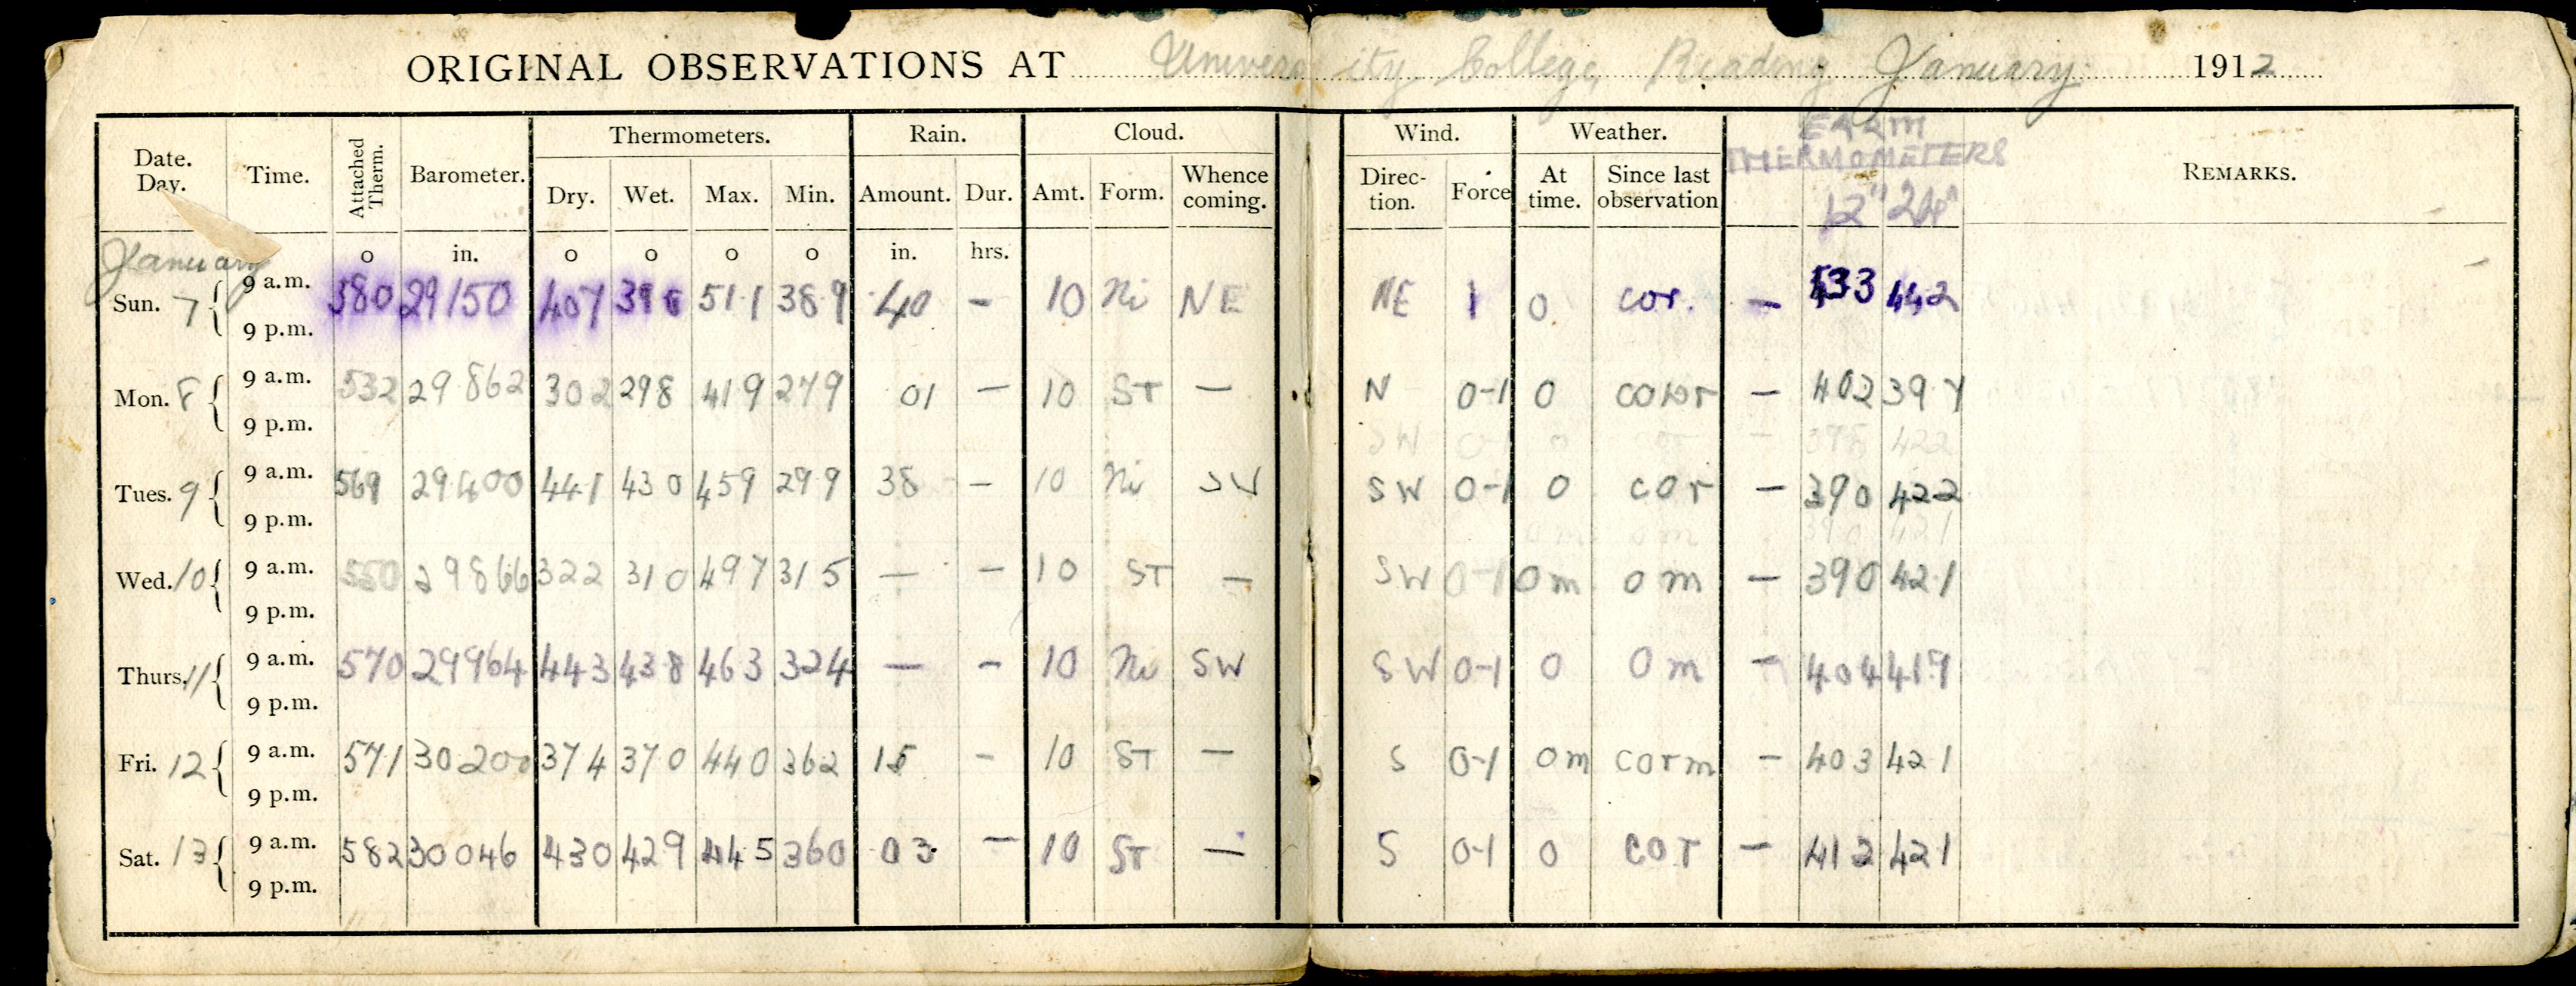 ORIGINAL OBSERVATIONS AT University College, Reading January 1912
Date. Day. Time. Attached Therm. Barometer. Thermometers. Rain. Cloud. Wind. Weather. EARTH THERMOMETERS REMARKS.
Dry. Wet. Max. Min. Amount. Dur. Amt. Form. Whence coming. Direc- tion. Force At time. Since last observation 12" 24"
January o in. o o o o in. hrs.
Sun. 7 9 a.m. 580 29150 407 396 51.1 389 .40 - 10 Ni NE NE 1 o cor. - 442
9 p.m.
Mon. 8 9 a.m. 532 29.862 302 298 419 279 01 - 10 ST - N 0-1 o - 402 39.7
9 p.m.
SW 0-1 o cor - 422
Tues. 9 9 a.m. 569 29.400 441 430 459 299 38 - 10 Ni SW SW 0-1 o cor - 390 422
9 p.m.
om om 390 421
Wed. 10 9 a.m. 550 29866 322 310 497 315 - - 10 ST - SW 0-1 om om - 390 421
9 p.m.
Thurs. 11 9 a.m. 570 29964 443 438 463 324 - - 10 Ni SW SW 0-1 o om - 404 419
9 p.m.
Fri. 12 9 a.m. 571 30.200 374 370 440 362 15 - 10 ST - S 0-1 om corm - 403 421
9 p.m.
Sat. 13 9 a.m. 582 30046 430 429 445 360 03 - 10 ST - S 0-1 o cor - 412 421
9 p.m.